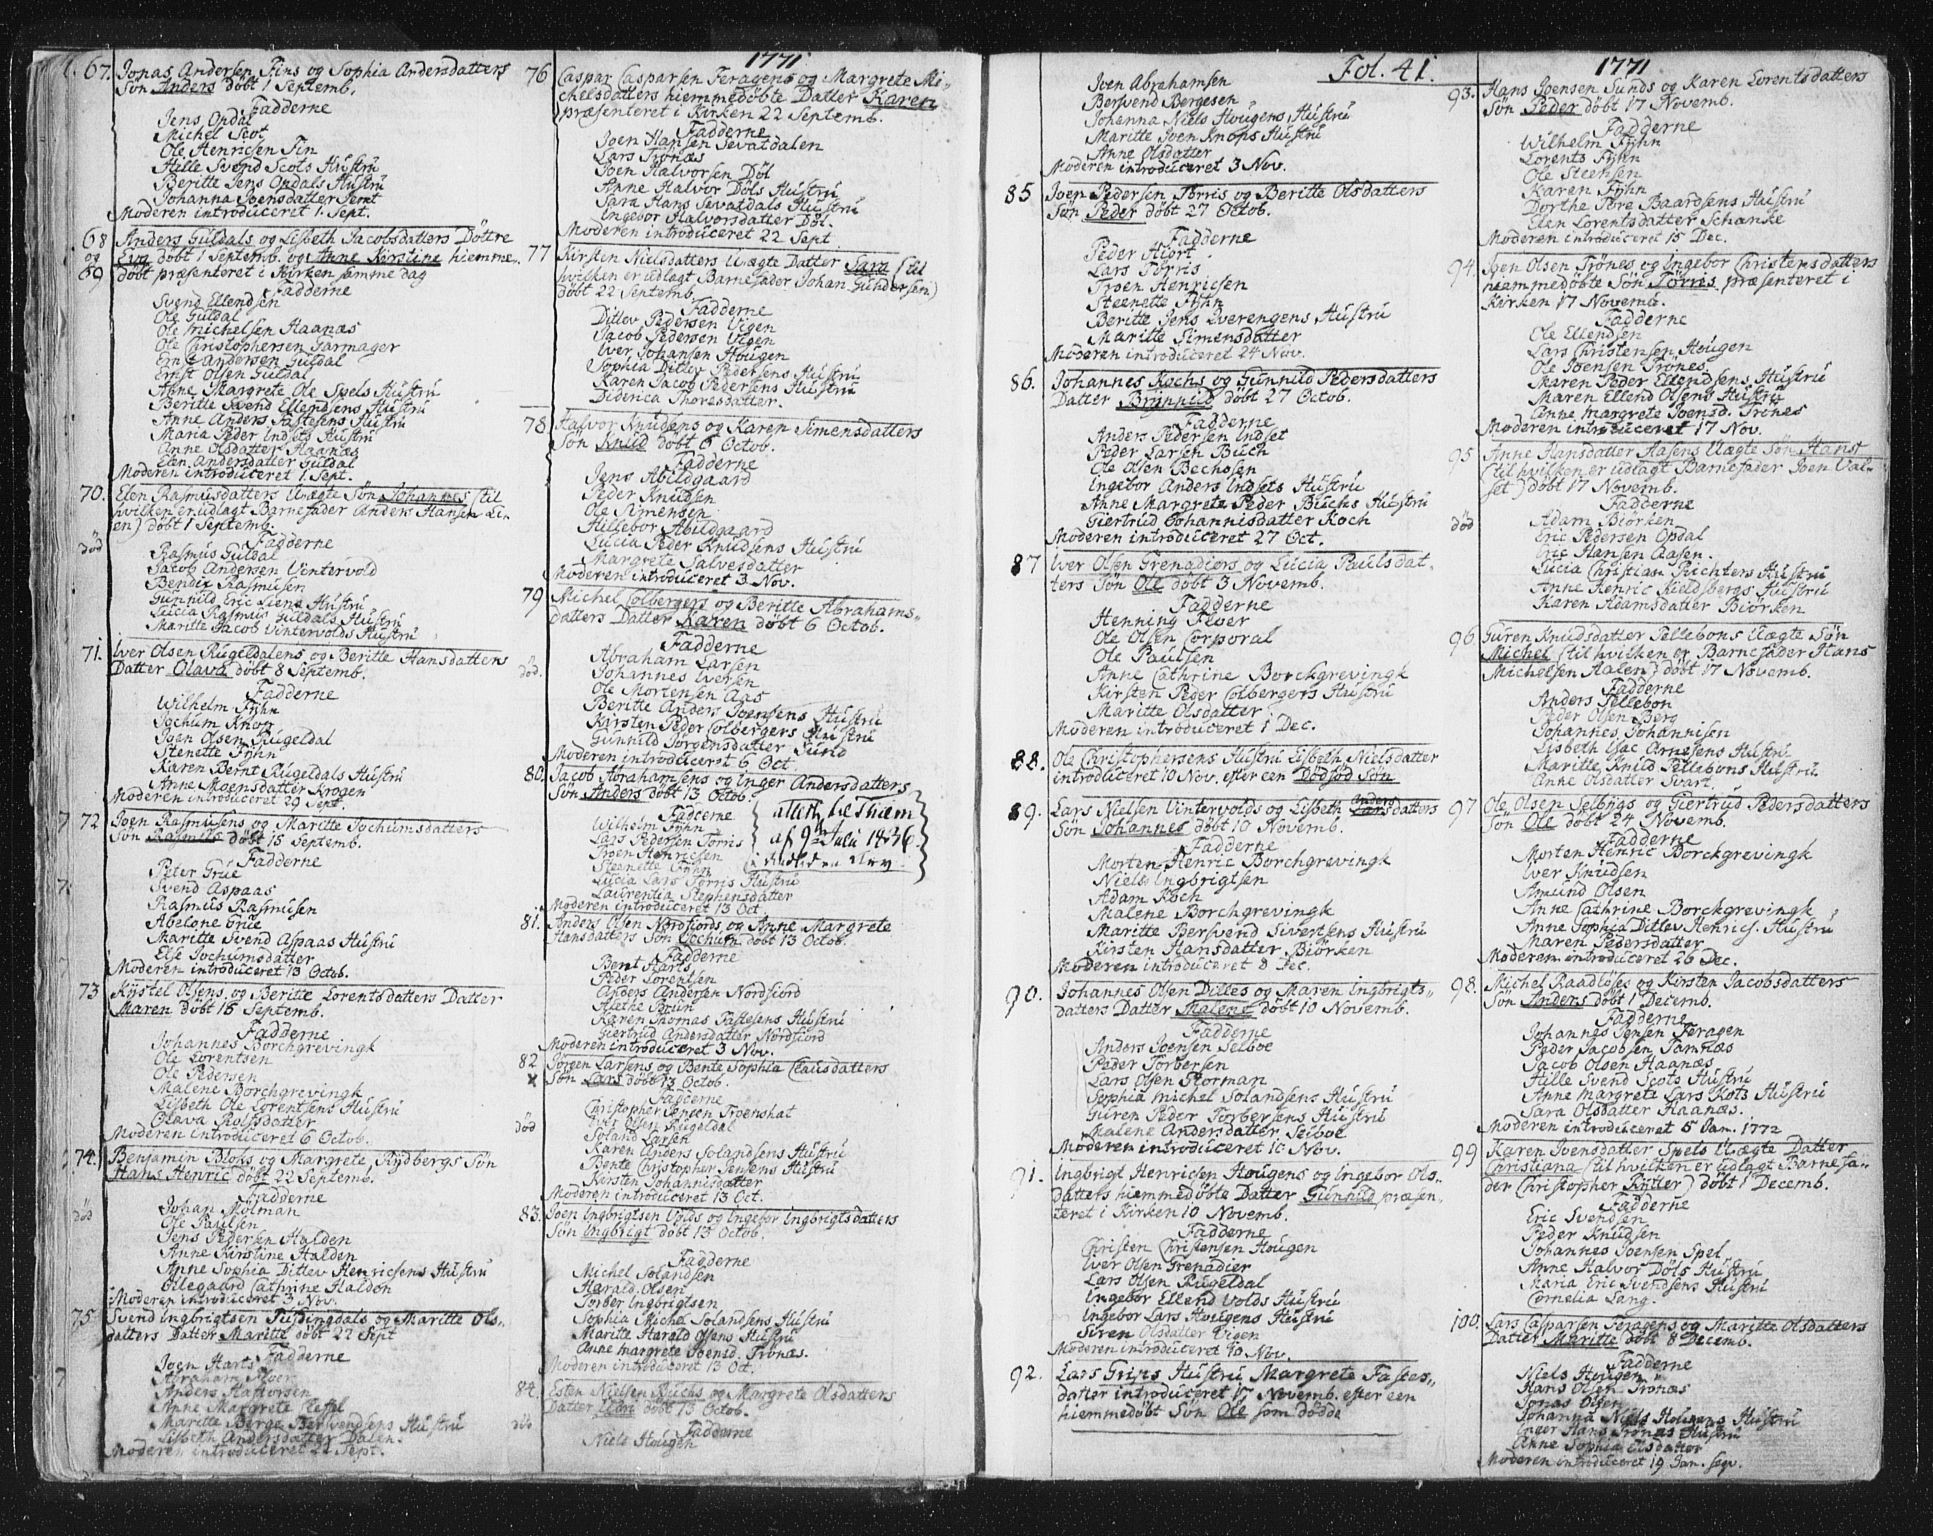 1771
67. Jonas Andersen Fins og Sophia Andersdatters
Søn Anders døbt 1 Septemb.
Fadderne
Jens Opdal
Michel Scot
Ole Henricsen Fin
Hille Svend Scots Hustru
Beritte Jens Opdals Hustru
Johanna Joensdatter
Moderen introduceret 1. Sept.
68 og 69 Anders Guldals og Lisbeth Jacobsdatters Døttre
Eva døbt 1 Septemb. og Anne Kirstine hiemme-
døbt præsenteret i Kirken samme dag
Fadderne
Svend Ellendsen
Ole Guldal
Ole Michelsen Haanæs
Ole Christophersen Garmager
Ernst Andersen Guldal
Ernst Olsen Guldal
Anne Margrete Ole Spels Hustru
Beritte Svend Ellendsens Hustru
Anne Anders Fastesens Hustru
Maria Peder Indsets Hustru
Anne Olsdatter Haanæs
Elen Andersdatter Guldal
Moderen introduceret 1. Sept.
70. Elen Rasmusdatters Uægte Søn Johannes (til
hvilken er udlagt Barnefader Anders Hansen Li-
en) døbt 1 Septemb.
død Fadderne
Rasmus Guldal
Jacob Andersen Vintervold
Bendix Rasmusen
Gunnild Eric Liens Hustru
Lucia Rasmus Guldals Hustru
Maritte Jacob Vintervolds Hustru
71. Iver Olsen Rugeldalens og Beritte Hansdatters
Datter Olava døbt 8 Septemb.
Fadderne
Wilhelm Fyhn
Jochum Knop
Joen Olsen Rugeldal
Stenette Fyhn
Karen Bernt Rugeldals Hustru
Anne Moensdatter Krogen
Moderen introduceret 29 Sept.
72 Joen Rasmusens og Maritte Jochumsdatters
Søn Rasmus døbt 15 Septemb.
Fadderne
Peter Grue
Svend Aspaas
Rasmus Rasmusen
Abelone Grue
Maritte Svend Aspaas Hustru
Else Jochumsdatter
Moderen introduceret 13 Octob.
73 Kystel Olsens og Beritte Lorentsdatters Datter
Maren døbt 15 Septemb.
Fadderne
Johannes Borchgrevingk
Ole Lorentsen
Ole Pedersen
Malene Borchgrevingk
Lisbeth Ole Lorentsens Hustru
Olava Rolfsdatter
Moderen introduceret 6 Octob.
74. Benjamin Bloks og Margrete Rydbergs Søn
Hans Henric døbt 22 Septemb.
død Fadderne
Johan Molman
Ole Paulsen
Jens Pedersen Halden
Anne Kirstine Halden
Anne Sophia Ditlev Henricsens Hustru
Oilegaard Cathrine Haldon
Moderen introduceret 3 Nov.
75. Svend Ingbrigtsen Tufsingdals og Maritte Ols-
datters Datter Maritte døbt 22 Sept
Fadderne
Joen Harts
Abraham Floer
Anders Halvorsen
Anne Margrete Pleffel
Maritte Berge Bersvendsens Hustru
Lisbeth Andersdatter Dalen.
Moderen introduceret 22 Sept.
76 Caspar Casparsen Feragens og Margrete Mi-
chelsdatters hiemmedøbte Datter Karen
præsenteret i Kirken 22 Septemb.
Fadderne
Joen Hansen Sevatdalen
Lars Trønæs
Joen Halvorsen Døl
Anne Halvor Døls Hustru
Sara Hans Sevatdals Hustru
Ingebor Halvorsdatter Døl.
Moderen introduceret 22 Sept
77 Kirsten Nielsdatters Uægte Datter Sara (til
hvilken er udlagt Barnefader Johan Gundersen)
døbt 22 Septemb.
Fadderne
Ditlev Pedersen Vigen
Jacob Pedersen Vigen
Iver Johansen Hougen
Sophia Ditlev Pedersens Hustru
Karen Jacob Pedersens Hustru
Diderica Thoresdatter.
78 Halvor Knudsens og Karen Simensdatters
Søn Knud døbt 6 Octob.
Fadderne
Jens Abildgaard
Peder Knudsen
Ole Simensen
Hillebor Abildgaard
Lucia Peder Knudsens Hustru
Margrete Salvesdatter
Moderen introduceret 3 Nov.
79 Michel Colbergers og Beritte Abrahams-
datters Datter Karen døbt 6 Octob.
død. Fadderne
Abraham Larsen
Johannes Iversen
Ole Mortensen Aas
Beritte Anders Joensens Hustru
Kirsten Peder Colbergers Hustru
Gunnild Jørgensdatter Sund
Moderen introduceret 6 Oct
80. Jacob Abrahamsens og Inger Andersdatters
Søn Anders døbt 13 Octob.
Fadderne
Wilhelm Fyhn
Lars Pedersen Torris
Troen Henricsen
Steenette Fyhn
Lucia Lars Torris Hustru
Laurentia Stephensdatter
Moderen introduceret 13 Oct
af 9de Juli 1836.
81. Anders Olsen Nordfiords og Anne Margrete
Hansdatters Søn Jochum døbt 13 Octob.
Fadderne
Bernt Harts
Peder Lorentsen
Anders Andersen Nordfiord
Grethe Bruun
Karen Thomas Fastesens Hustru
Giertrud Andersdatter Nordfiord
Moderen introduceret 3 Nov.
82 Jørgen Larsens og Bente Sophia Clausdatters
x Søn Lars døbt 13 Octob.
død Fadderne
Christopher Jensen Troenshat
Iver Olsen Rugeldal
Soland Larsen
Karen Anders Solandsens Hustru
Bente Christopher Jensens Hustru
Kirsten Johannisdatter
Moderen introduceret 13 Oct.
83. Joen Ingbrigtsen Volds og Ingebor Ingbrigtsdatters
Søn Ingbrigt døbt 13 Octob.
Fadderne
Michel Solandsen
Harald Olsen
Torber Ingbrigtsen
Sophia Michel Solandsens Hustru
Maritte Harald Olsens Hustru
Anne Margrete Joensd. Trønæs.
Moderen introduceret 13 Oct.
84. Esten Nielsen Buchs og Margrete Olsdatters
Datter døbt 13 Octob.
død Fadderne
Niels Hougen
Fol. 41. 1771
Joen Abrahamsen
Bersvend Bergesen
Johanna Niels Hougens Hustru
Maritte Joen Knops Hustru
Anne Olsdatter
Moderen introduceret 3 Nov.
85 Joen Pedersen Torris og Beritte Olsdatters
Søn Peder døbt 27 Octob.
Fadderne
Peder Hiort
Lars Torris
Troen Henricsen
Steenette Fyhn
Beritte Jens Qverengens Hustru
Maritte Simensdatter
Moderen introduceret 24 Nov.
86. Johannes Kochs og Gunnild Pedersdatters
Datter Brynnild døbt 27 Octob.
Fadderne
Anders Pedersen Indset
Peder Larsen Buch
Ole Olsen Bechosen
Ingebor Anders Indsets Hustru
Anne Margrete Peder Buchs Hustru
Giertrud Johannisdatter Koch
Moderen introduceret 27 Oct.
87 Iver Olsen Grenadiers og Lucia Paulsdat-
ters Søn Ole døbt 3 Novemb.
Fadderne
Henning Floer
Ole Olsen Corporal
Ole Paulsen
Anne Cathrine Borckgrevingk
Kirsten Peder Colbergers Hustru
Maritte Olsdatter
Moderen introduceret 1 Dec.
88. Ole Christophersens Hustru Lisbeth Nielsdatter
introduceret 10 Nov. efter een Dødfød Søn
89. Lars Nielsen Vintervolds og Lisbeth Anders Larsdatters
Søn Johannes døbt 10 Novemb.
Fadderne
Morten Henric Borchgrevingk
Niels Ingbrigtsen
Adam Koch
Malene Borchgrevingk
Maritte Bersvend Sivertsens Hustru
Kirsten Hansdatter Biørken
Moderen introduceret 8 Dec.
90. Johannes Olsen Dilles og Maren Ingbrigts-
datters Datter Malene døbt 10 Novemb.
Fadderne
Anders Joensen Selboe
Peder Torbersen
Lars Olsen Storman
Sophia Michel Solandsens Hustru
Guren Peder Torbersens Hustru
Malene Andersdatter Selboe
Moderen introduceret 10 Nov.
91. Ingbrigt Henricsen Hougens og Ingebor Ols-
datters hiemmedøbte Datter Gunnild præsen-
teret i Kirken 10 Novemb.
Fadderne
Christen Christensen Hougen
Iver Olsen Grenadier
Lars Olsen Rugeldal
Ingebor Ellend Volds Hustru
Ingebor Lars Hougens Hustru
Siren Olsdatter Vigen
Moderen introduceret 10 Nov.
92. Lars Grips Hustru Margrete Fastes-
datter introduceret 17 Novemb. efter een
hiemmedøbt Søn Ole som døde
93. Hans Joensen Sunds og Karen Lorentsdatters
Søn Peder døbt 17 Novemb.
Fadderne
Wilhelm Fyhn
Lorents Fyhn
Ole Steensen
Karen Fyhn
Dorthe Tore Baardsens Hustru
Elen Lorentsdatter Schanke
Moderen introduceret 15 Dec.
94. Joen Olsen Trønes og Ingebor Christensdatters
hiemmedøbte Søn Torres præsenteret i
Kirken 17 Novemb.
Fadderne
Ole Ellendsen
Lars Christensen Hougen
Ole Joensen Trønes
Karen Peder Ellendsens Hustru
Maren Ellend Olsens Hustru
Anne Margrete Joensd. Trønes
Moderen introduceret 17 Nov.
95 Anne Hansdatter Aasens Uægte Søn Hans
(til hvilken er udlagt Barnefader Joen Val-
set) døbt 17 Novemb.
død Fadderne
Adam Biørken
Eric Pedersen Opdal
Eric Hansen Aasen.
Lucia Christian Richters Hustru
Anne Henric Kieldsbergs Hustru
Karen Adamsdatter Biørken
96 Guren Knudsdatter Sellebons Uægte Søn
Michel (til hvilken er Barnefader Hans
Michelsen Aalen) døbt 17 Novemb.
Fadderne
Anders Sellebon
Peder Olsen Berg
Johannes Johannisen
Lisbeth Isac Arnesens Hustru
Maritte Knud Sellebons Hustru
Anne Olsdatter Svart.
97 Ole Olsen Selboes og Giertrud Pedersdatters
Søn Ole døbt 24 Novemb.
Fadderne
Morten Henric Borckgrevingk
Iver Knudsen
Amund Olsen
Anne Cathrine Borckgrevingk
Anne Sophia Ditlev Henrics. Hustru
Maren Pedersdatter
Moderen introduceret 26 Dec.
98. Michel Raadløses og Kirsten Jacobsdatters
Søn Anders døbt 1 Decemb.
Fadderne
Johannes Jensen Feragen
Peder Jacobsen Tamnæs
Jacob Olsen Haanæs
Hille Svend Scots Hustru
Anne Margrete Lars Kots Hustru
Sara Olsdatter Haanæs.
Moderen introduceret 5 Jan. 1772
99 Karen Ivensdatter Spels Uægte Datter
Christiana (til hvilken er udlagt Barnefa-
der Christopher Rytter) døbt 1 Decemb.
Fadderne
Eric Svendsen
Peder Knudsen
Johannes Joensen Spel
Anne Halvor Døls Hustru
Maria Eric Svendsens Hustru
Cornelia Lang.
100. Lars Casparsen Feragens og Maritte Olsdatters
Datter Maritte døbt 8 Decemb.
Fadderne
Niels Hougen
Hans Olsen Trønæs
Jonas Olsen
Johanna Niels Hougens Hustru
Inger Hans Trønæs Hustru
Anne Sophia Elsdatter
Moderen introduceret 19 Jan. seqv.